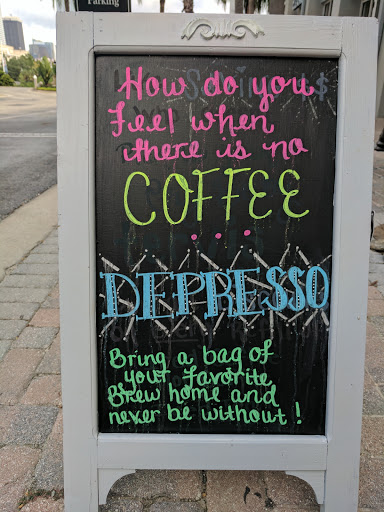 Parking
How do you
feel when
there is no
COFFEE
...
DEPRESSO
Bring a bag of
your favorite
Brew home and
never be without!